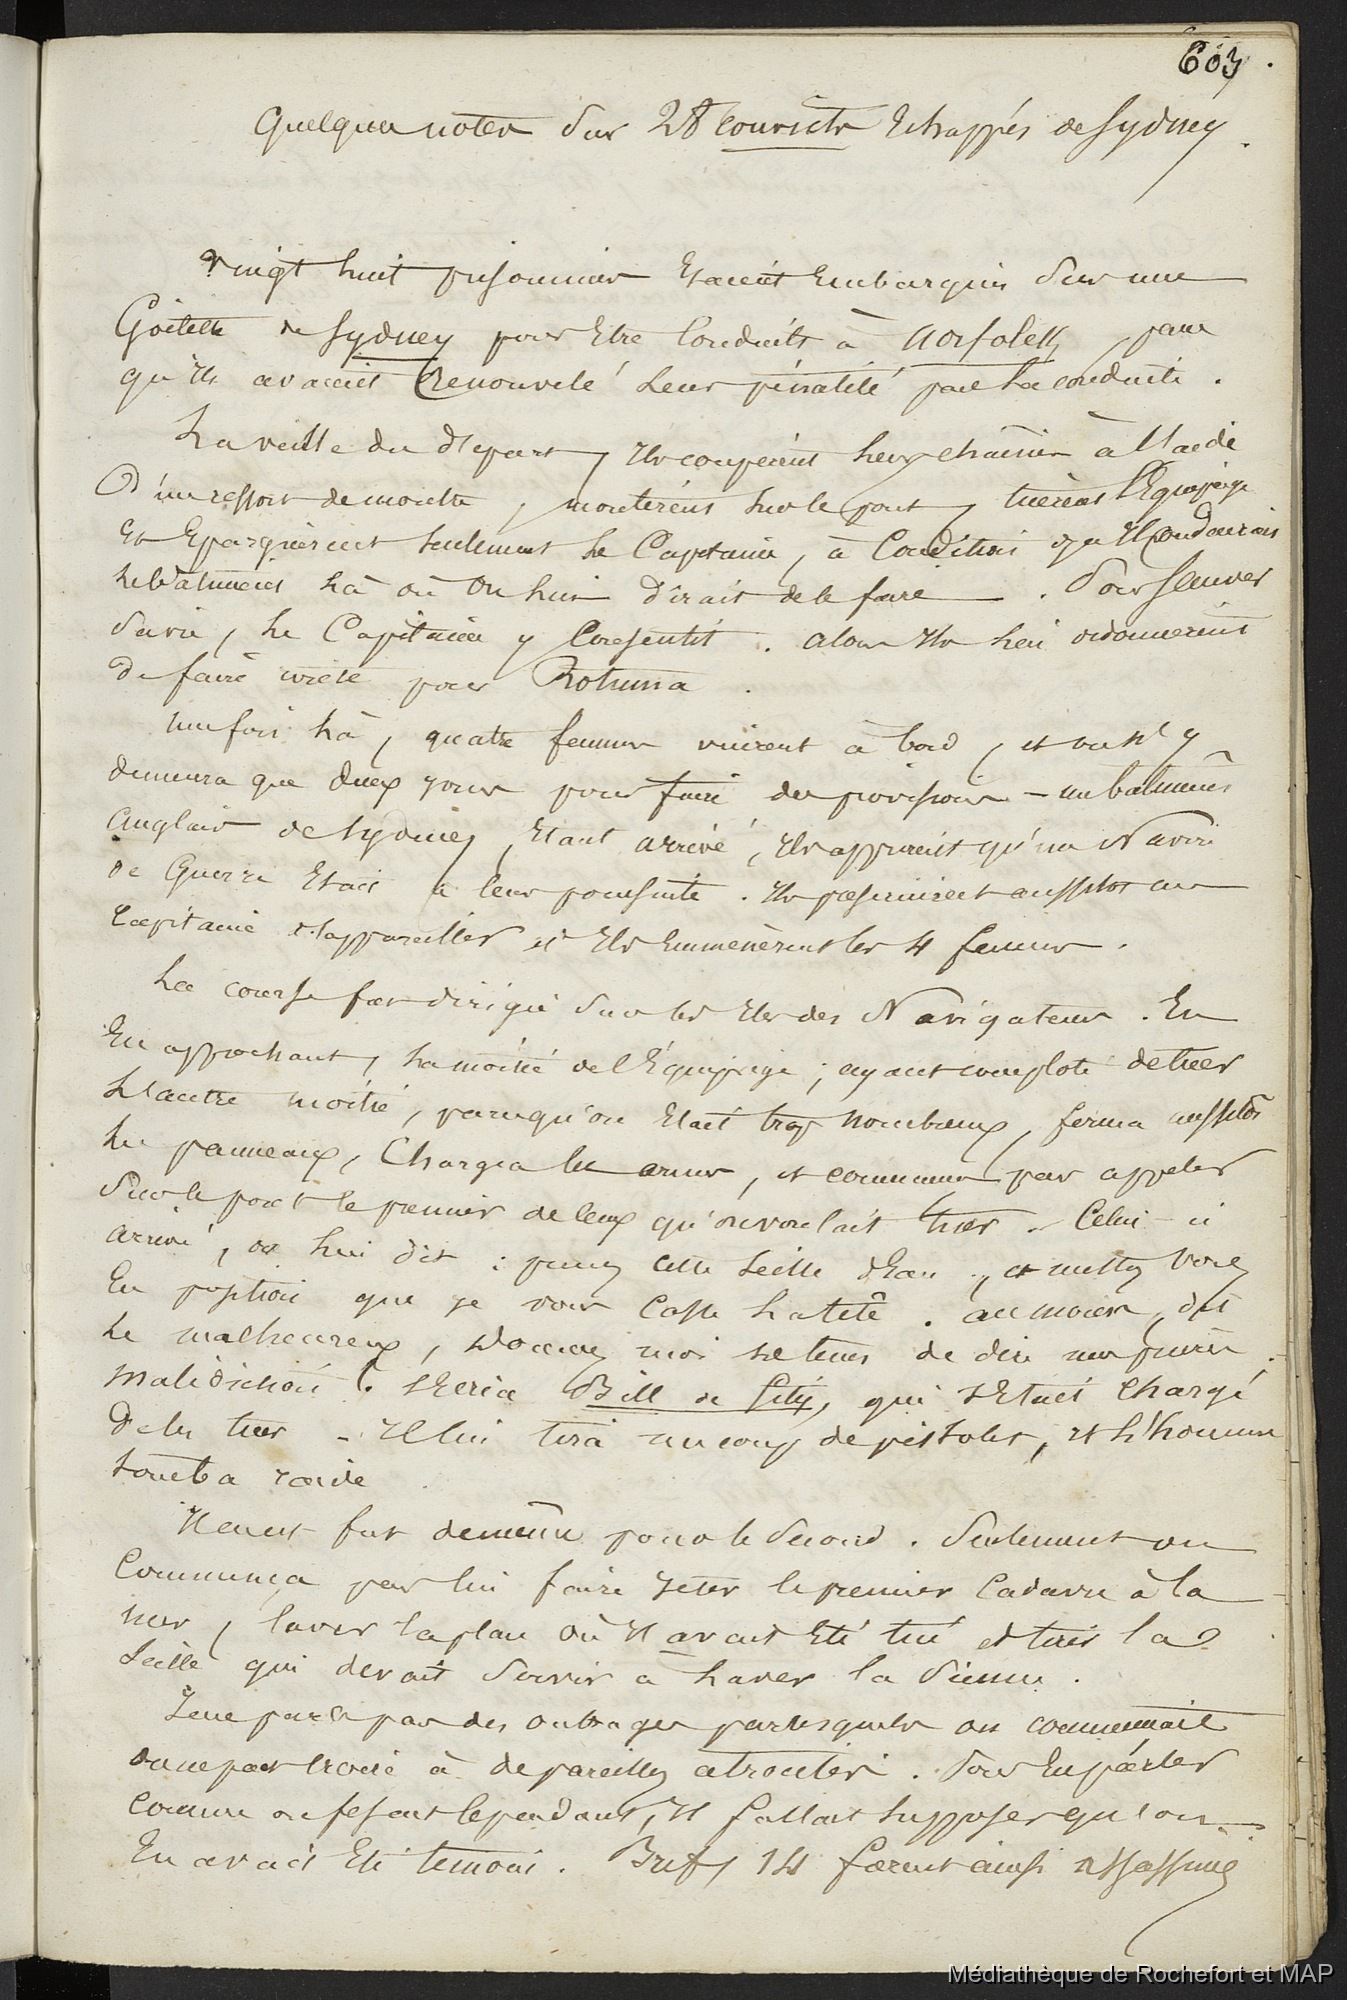 603.
Quelques notes sur 28 convicts Echappés de Sydney.
Vingt huit prisonniers Etaient Embarqués sur une
Goëlette de Sydney pour Etre Conduits à Norfolck, parce
qu'ils avaient renouvelé leur pénalité par la conduite.
La veille du départ, Ils coupèrent leurs chaines à l'aide
D'un ressort de montre, montèrent sur le pont, tuèrent l'Equipage
Et Epargnèrent seulement le Capitaine, à Condition qu'Il conduirais
le bâtiment là où On lui dirait de le faire. Pour sauver
sa vie, le Capitaine y Consentit. alors Ils lui ordonnèrent
De faire voile pour Rotuma.
Une fois là, quatre femmes vinrent à bord, et on n'y
demeura que deux jours pour faire des provisions - un bâtiment
anglais de Sydney, Etant arrivé, Ils apprirent qu'un Navire
de Guerre Etait à leur poursuite. Ils prescrivirent aussitot au
Capitaine d'appareiller et Ils Emmenèrent les 4 femmes.
La course fut dirigée sur les Iles des Navigateurs. En
En approchant, la moitié de l'Équipage, ayant comploté de tuer
L'autre moitié, parcequ'on Etait trop nombreux, ferma aussitôt
les panneaux, Chargea les armes, et commença par appeler
Sur le pont le premier de ceux qu'on voulait tuer. Celui-ci
arrivé, on lui dit : prenez cette seille d'Eau, et mettez vous
En position que je vous Casse la tête. au moins, dit
le malheureux, Donnez moi le tems de dire une prière.
Malédiction ! s'Ecria Bill de City, qui s'Etait Chargé
De les tuer - Il lui tira un coup de pistolet, et l'homme
tomba raide.
Il en fut de même pour le second. Seulement on
Commença par lui faire jeter le premier Cadavre à la
mer, laver la place où Il avait Eté tué et tirer la
Seille qui devait servir à laver la sienne.
Je ne parle pas des outrages par lesquels on commençait
à de pareilles atrocités. Pour En parler
Comme on fesait Cependant, Il fallait supposer qu'on
En avait Eté temoin. Bref, 14 furent ainsi assassinés
Médiathèque de Rochefort et MAP